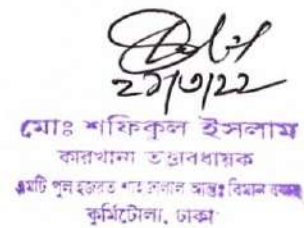 ২১/৩/২২
মোঃ শফিকুল ইসলাম
কারখানা তত্ত্বাবধায়ক
এমটি পুল হজরত শাহ জালাল আন্তঃ বিমান বন্দর
কুর্মিটোলা, ঢাকা